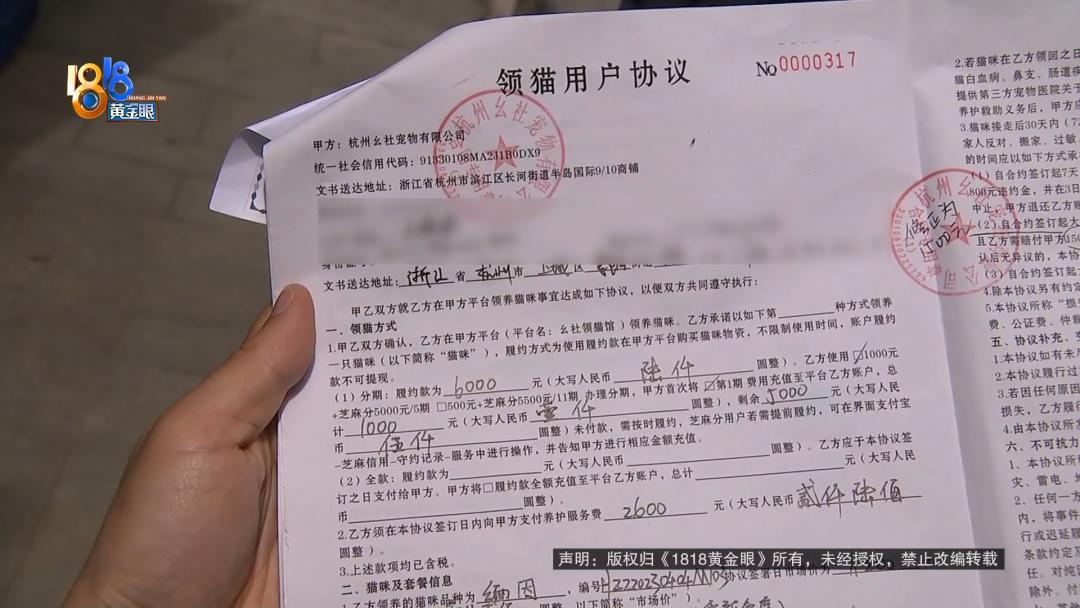 1818
HUANG JIN YAN
黄金眼
领猫用户协议
No 0000317
甲方：杭州幺社宠物有限公司
统一社会信用代码：91330108MA2J1B0DX9
文书送达地址：浙江省杭州市滨江区长河街道半岛国际9/10商铺
文书送达地址：浙江省杭州市上城区
甲乙双方就乙方在甲方平台领养猫咪事宜达成如下协议，以便双方共同遵守执行：
一、领猫方式
1.甲乙双方确认，乙方在甲方平台（平台名：幺社领猫馆）领养猫咪。乙方承诺以如下第____种方式领养
一只猫咪（以下简称“猫咪”），履约方式为使用履约款在甲方平台购买猫咪物资，不限制使用时间，账户履约
款不可提现。
（1）分期：履约款为6000元（大写人民币陆仟圆整）。乙方使用☑1000元
+芝麻分5000元/5期 □500元+芝麻分5500元/11期 办理分期，甲方首次将☑第1期 费用充值至平台乙方账户，总
计1000元（大写人民币壹仟圆整），剩余5000元（大写人民
币伍仟圆整）未付款，需按时履约，芝麻分用户若需提前履约，可在界面支付宝
-芝麻信用-守约记录-服务中进行操作，并告知甲方进行相应金额充值。
（2）全款：履约款为____元（大写人民币____圆整）。乙方应于本协议签
订之日支付给甲方。甲方将□履约款全额充值至平台乙方账户，总计____元（大写人民
币____圆整）。
2.乙方须在本协议签订日内向甲方支付养护服务费2600元（大写人民币贰仟陆佰
圆整）。
3.上述款项均已含税。
二、猫咪及套餐信息
1.乙方领养的猫咪品种为缅因，编号
协议签署日市场价为
圆整（以下简称“市场价”）。
2.若猫咪在乙方领回之日
猫白血病、鼻支、肠道病
提供第三方宠物医院关于
养护救助义务后，甲方应
3.猫咪接走后30天内（72
家人反对、搬家、过敏
的时间应以如下方式承
（1）自合约签订起7天
800元违约金，并在3日
中止，甲方退还乙方账
（2）自合约签订起大
且乙方需赔付甲方150
认后无异议的，本协
（3）自合约签订起
4.除本协议另有约定
5.本协议所称“损
费、公证费、仲裁
五、协议补充、变
1.本协议如有未尽
2.本协议履行过
3.若因任何原因
损失，乙方履行
4.由本协议所
六、不可抗力
1、本协议所
灾、雷电、地
2、任何一方
内，将事件
行或迟延履
条款约定及
任。对此因
除外。付
声明：版权归《1818黄金眼》所有，未经授权，禁止改编转载